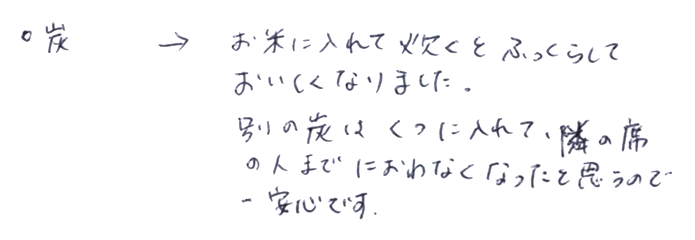 ○炭 → お米に入れて炊くとふっくらして
おいしくなりました。
別の炭はくつに入れて、隣の席
の人までにおわなくなったと思うので
一安心です.